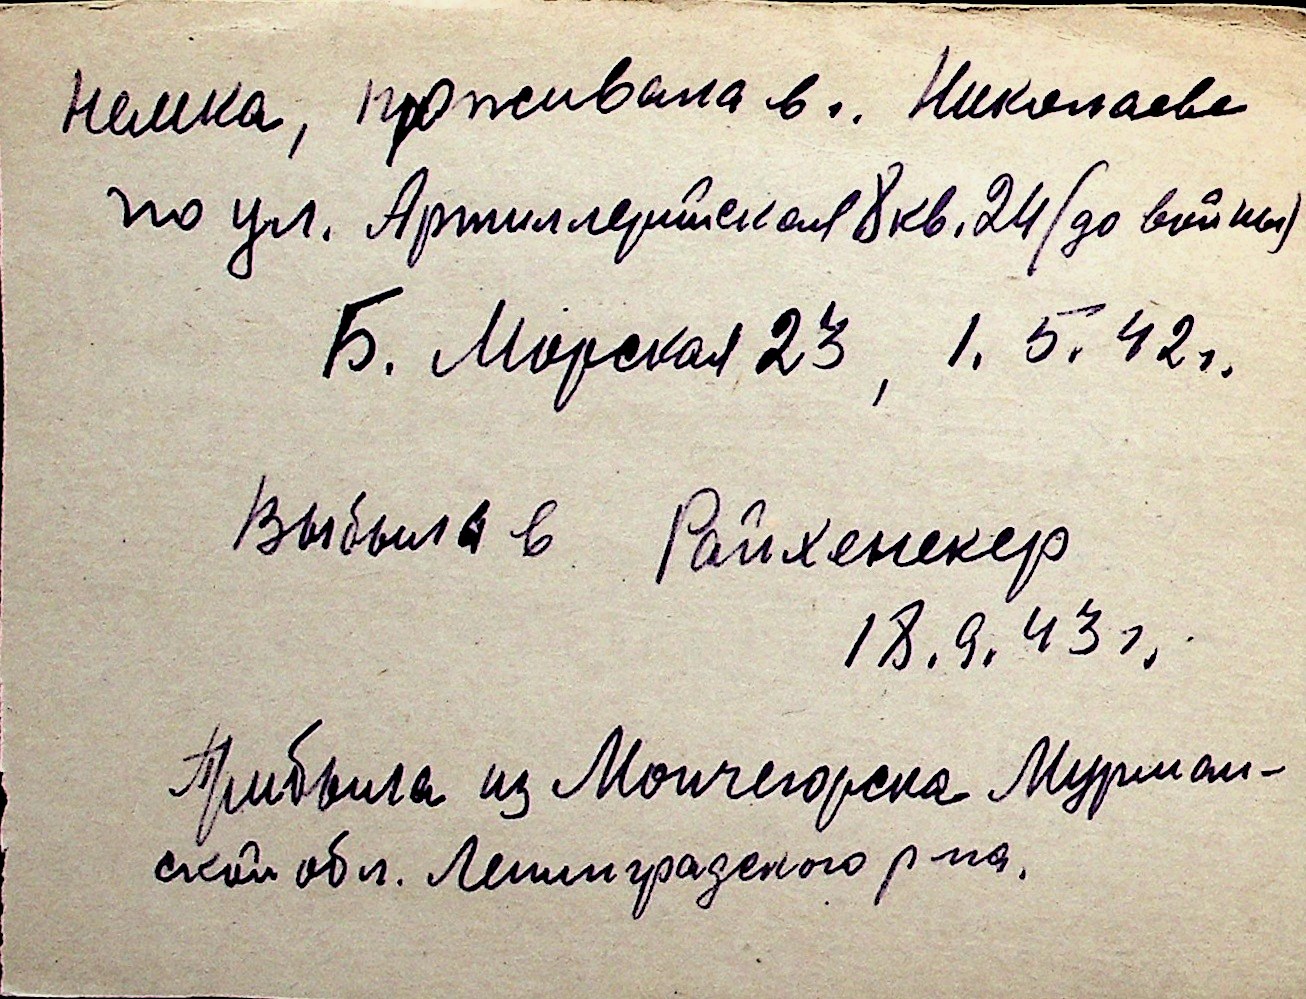 немка, проживала в г. Николаеве
по ул. Артиллерийская 8 кв. 24 (до войны)
Б. Морская 23, 1. 5. 42 г.
Выбыла в Райхенекер
18. 9. 43 г.
Прибыла из Мончегорска Мурман-
ской обл. Ленинградского р-на.